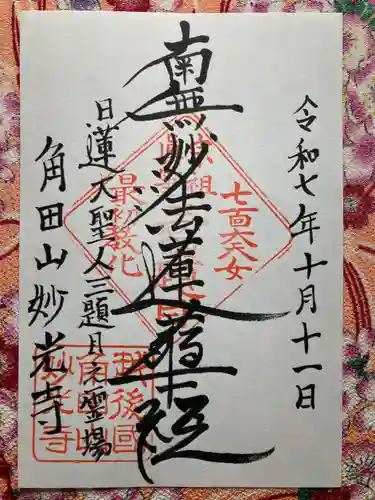 令和七年十月十一日
七面大天女
南無妙法蓮華経
最初教化
日蓮大聖人三題目之霊場
角田山妙光寺
越後國
角田山
妙光寺